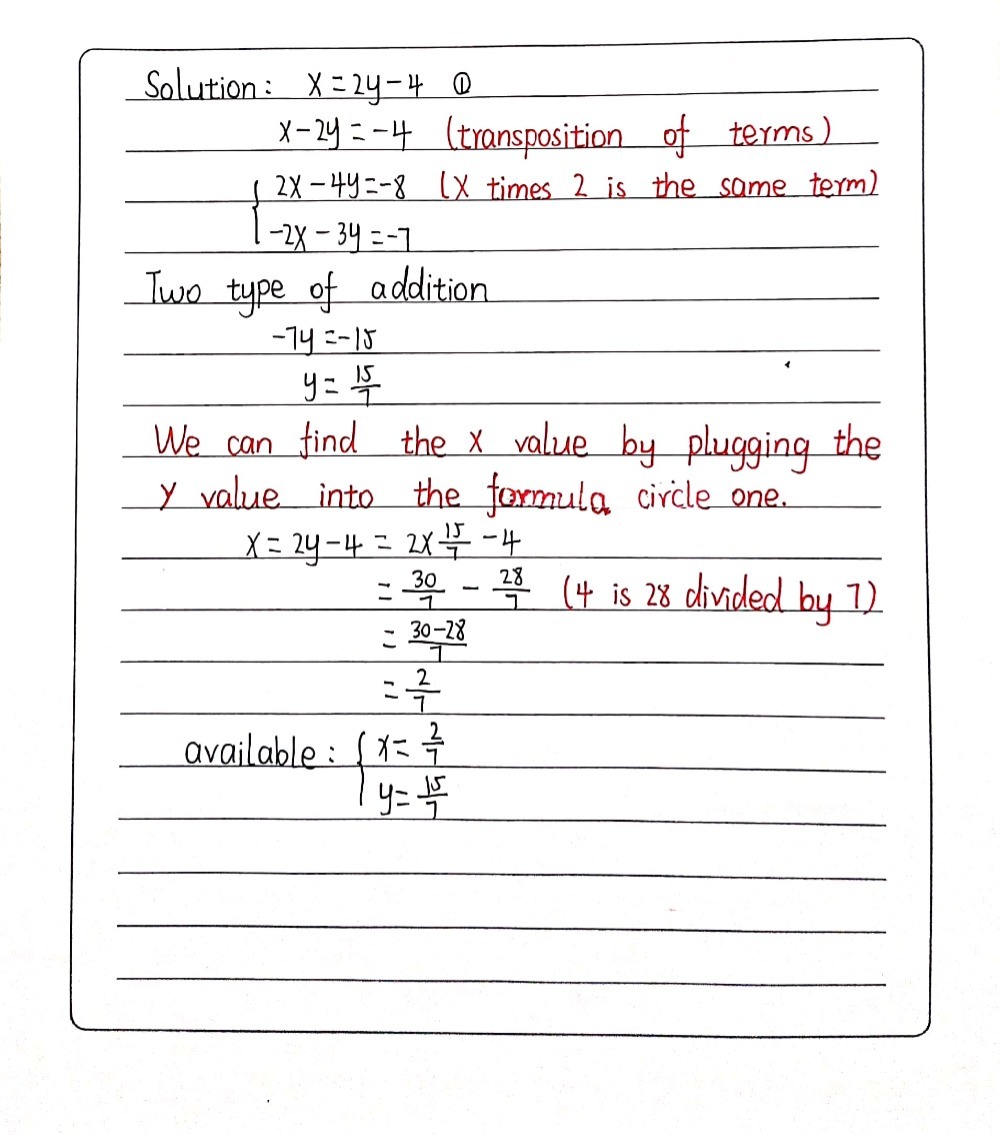 Solution: x=2y-4 ①
x-2y=-4 (transposition of terms)
2x-4y=-8 (x times 2 is the same term)
-2x-3y=-7
Two type of addition
-7y=-15
y=15/7
We can find the x value by plugging the
y value into the formula circle one.
x=2y-4=2×15/7-4
=30/7-28/7 (4 is 28 divided by 7)
=30-28/7
=2/7
available: { x=2/7
y=15/7